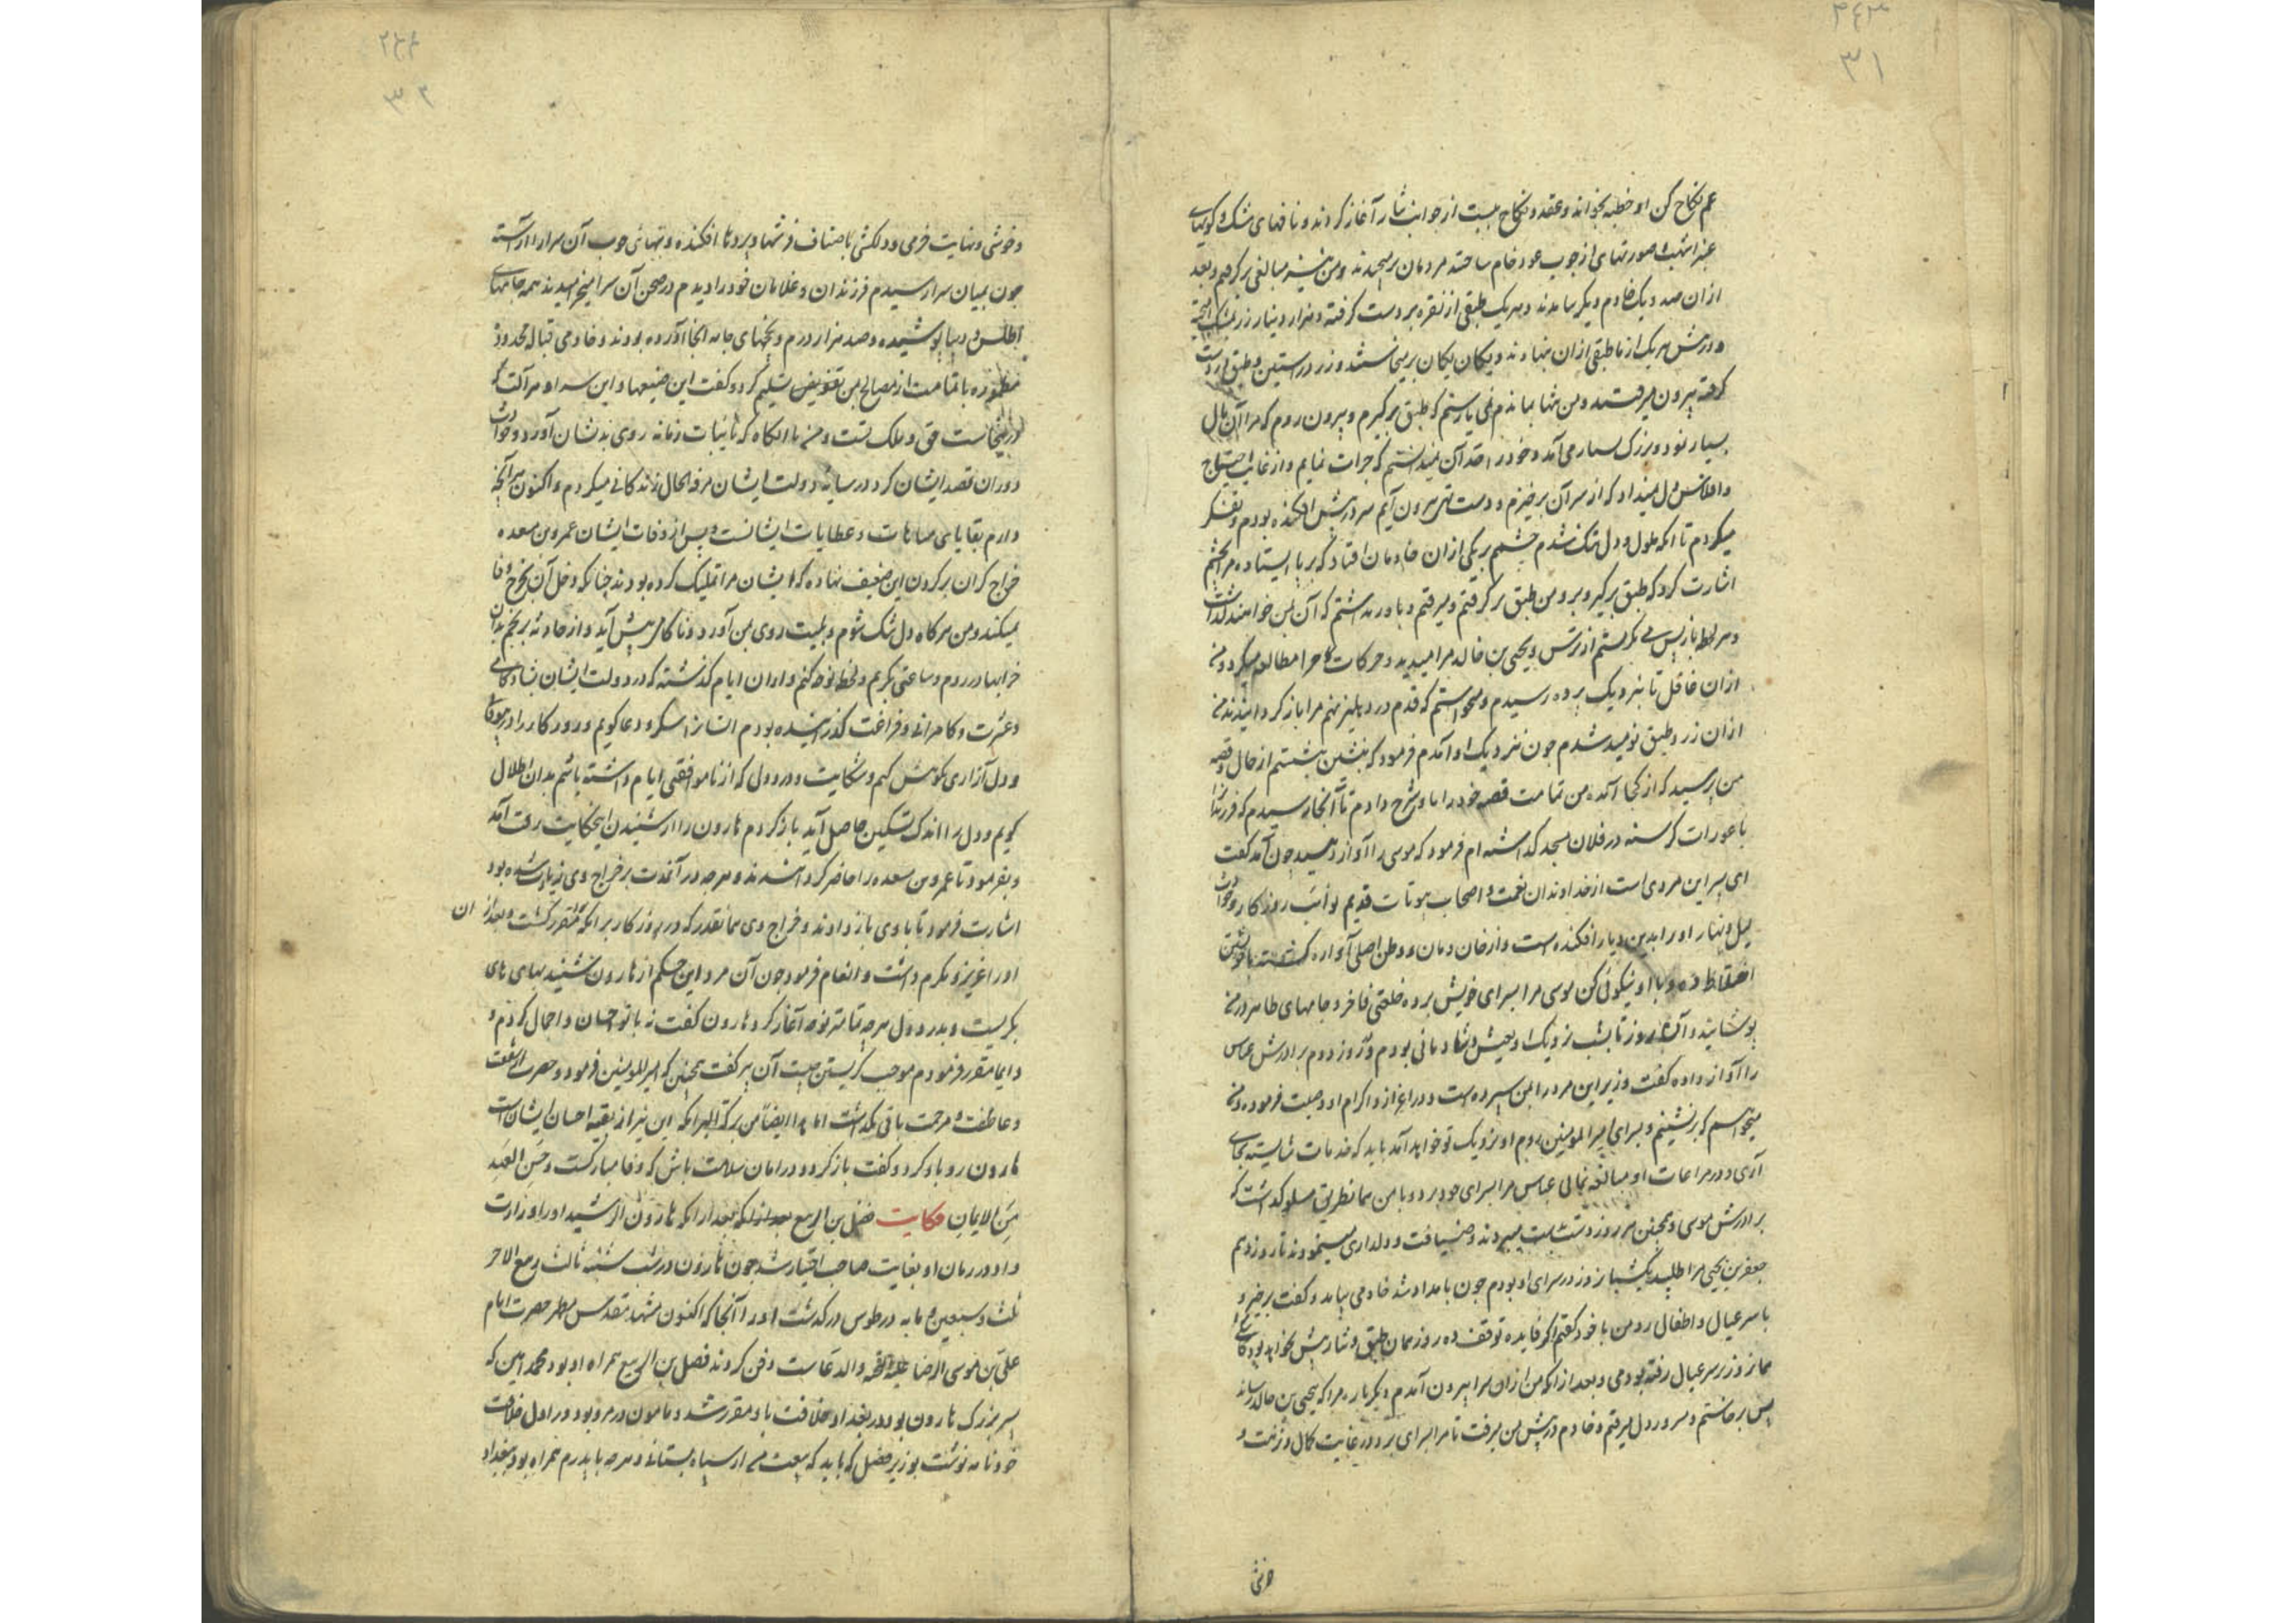 ۲۴۳
۳۱
عم نکاح کن او خطبه بخواند و عقد و نکاح ببست از جوانب نثار آغاز کردند و نافهای مشک و گویهای
عنبر اشهب و صورتهای از چوب عود خام ساخته مردمان برمیچیدند و من نیز مبالغی برگرفتم و بعد
ازان صد و یک خادم دیگر بیامدند و هر یک طبقی از نقره بر دست گرفته و هزار دینار زر
و در پیش هر یک از ما طبقی ازان بنهادند و یکان یکان برمیخاستند و زر در آستین و طبق در دست
گرفته بیرون میرفتند و من تنها بماندم نمی یارستم که طبق برگیرم و بیرون روم که مرا آن مال
بسیار نمود و بزرگ بسیار می آمد و خود را قدر آن نمیدانستم که جرات نمایم و از غایت احتیاج
و افلاس دل نمیداد که از سر آن برخیزم و دست تهی بیرون آیم سر در پیش افکنده بودم و تفکر
میکردم تا انکه ملول و دل تنگ شدم چشمم بر یکی ازان خادمان افتاد که بر پا ایستاده مرا بچشم
اشارت کرد که طبق برگیر و برو من طبق برگرفتم و میرفتم و باور نداشتم که آن بمن خواهند گذاشت
و هر لحظه باز پس می نگریستم از ترس و یحیی بن خالد مرا میدید و حرکات مرا مطالعه میکرد و من
ازان غافل تا بنزدیک پرده رسیدم و میخواستم که قدم در دهلیز نهم مرا باز گردانیدند من
ازان زر و طبق نومید شدم چون بنزدیک او آمدم فرمود که بنشین بنشستم از حال و قصه
من پرسید که از کجا آمده من تمامت قصه خود را با او شرح دادم تا آنجا رسیدم که فرزندان
با عورات گرسنه در فلان مسجد گذاشته ام فرمود که موسی را آواز دهید چون آمد گفت
ای پسر این مردی است از خداوندان نعمت و اصحاب بیوتات قدیم نوائب روزگار و حوادث
لیل و نهار او را بدین دیار افکنده است و از خان و مان و وطن اصلی آواره گشته با خویشتن
اختلاط ده و با او نیکوئی کن موسی مرا بسرای خویش برد و خلعتی فاخر و جامهای طاهر در من
پوشانید و آن روز تا بشب نزدیک او بعیش و شادمانی بودم و روز دوم برادرش عباس
را آواز داده گفت وزیر این مرد را بمن سپرده است و در اعزاز و اکرام او وصیت فرموده و من
میخواهم که برنشینم و بسرای امیر المومنین روم او نزدیک تو خواهد آمد باید که خدمات شایسته بجای
آری و در مراعات او مبالغه نمائی عباس مرا بسرای خود برد و با من همانطریق مسلوک داشت که
برادرش موسی و همچنین هر روز دست بدست میبردند و ضیافت و دلداری مینمودند تا روز دهم
جعفر بن یحیی مرا طلبید یک شبانروز در سرای او بودم چون بامداد شد خادمی بیامد و گفت برخیز و
با سر عیال و اطفال رو من با خود گفتم اگر فایده توقف ده روز همان طبق و نثار بیش نخواهد بود کاش
همانروز بر سر عیال رفته بودمی و بعد از انکه من ازان سرا بیرون آمدم دیگر باره مرا که یحیی بن خالد رساند
پس برخاستم و سر در دل میرفتم و خادم در پیش من میرفت تا مرا بسرای برد در غایت کمال و نزهت و
خوشی
۲۴۴
۳۲
و خوشی و نهایت خرمی و دلکشی باصناف فرشها و پردها افکنده و تنهای خوب آن سرا را آراسته
چون بمیان سرا رسیدم فرزندان و غلامان خود را دیدم در صحن آن سرا میخرامیدند همه جامهای
اطلس و دیبا پوشیده و صد هزار درم و تختهای جامه آنجا آورده بودند و خادمی قباله محدود
با تمامت از مصالح بمن تفویض و تسلیم کرد و گفت این ضیعها و این سرا و هر آلت که
درینجاست حق و ملک تست و من تا آنگاه که نائبات زمانه روی بدیشان آورد و حوادث
دوران قصد ایشان کرد در سایه دولت ایشان مرفه الحال زندگانی میکردم و اکنون هر آنچه
دارم بقایای مبارات و عطایات ایشانست و پس از وفات ایشان عمرو بن مسعده
خراج گران بر گردن این ضعیف نهاده که ایشان مرا تملیک کرده بودند چنانکه دخل آن بخرج وفا
نمیکند و من هر گاه دل تنگ شوم و بلیت روی بمن آورد و ناکامی پیش آید و از حادثه برنجم بدان
خرابها در روم و ساعتی بگریم و لحظه نوحه کنم و ازان ایام گذشته که در دولت ایشان بشادکامی
و عشرت و کامرانی و فراغت گذرانیده بودم ایشانرا شکر و دعا گویم و روزگار را در بیوفائی
و دل آزاری نکوهش کنم و شکایت و درد دلی که از ناموافقی ایام داشته باشم بدان اطلال
گویم و دل را اندک تسکین حاصل آید باز گردم هارون را از شنیدن این حکایت رقت آمد
و بفرمود تا عمرو بن مسعده را حاضر گردانیدند و هر چه در آنمدت بر خراج وی زیادت شده بود
اشارت فرمود تا با وی باز دادند و خراج وی همانقدر که در روزگار برامکه مقرر گشت و بعد از ان
او را عزیز و مکرم داشت و انعام فرمود چون آن مرد این حکم از هارون شنید بهای های
بگریست و بدرد دل هر چه تمامتر نوحه آغاز کرد هارون گفت نه با تو احسان و اجمال کردم و
دایما مقرر فرمودم موجب گریستن چیست آن پیر گفت همچنین که امیر المومنین فرمود و حضرت از شفقت
و عاطفت و مرحمت باقی نگذاشت اما هذا ایضا من برکة البرامکه این نیز از بقیه احسان ایشان است
هارون رو باو کرد و گفت باز گرد و در امان سلامت باش که وفا مبارکست و حسن العهد
من الایمان حکایت فضل بن الربیع بعد از انکه بعد از آنکه هارون الرشید او را وزارت
داد و در زمان او بغایت صاحب اختیار شد چون هارون در شب شنبه ثالث ربیع الاخر
ثلث و سبعین و مایه در طوس درگذشت او را آنجا که اکنون مشهد مقدس مطهر حضرت امام
علی بن موسی الرضا علیه التحیه والدعاست دفن کردند فضل بن الربیع همراه او بود محمد امین که
پسر بزرگ هارون بود در بغداد خلافت باو مقرر شد و مامون در مرو بود در اول خلافت
خود نامه نوشت بوزیر فضل که باید که بیعت من از سپاه بستانی و هر چه با پدرم همراه بود ببغداد